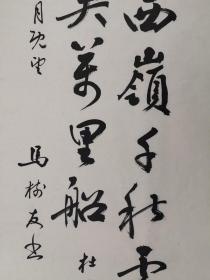 西嶺千秋雪
吴萬里船 杜
月既望
馬樹友书